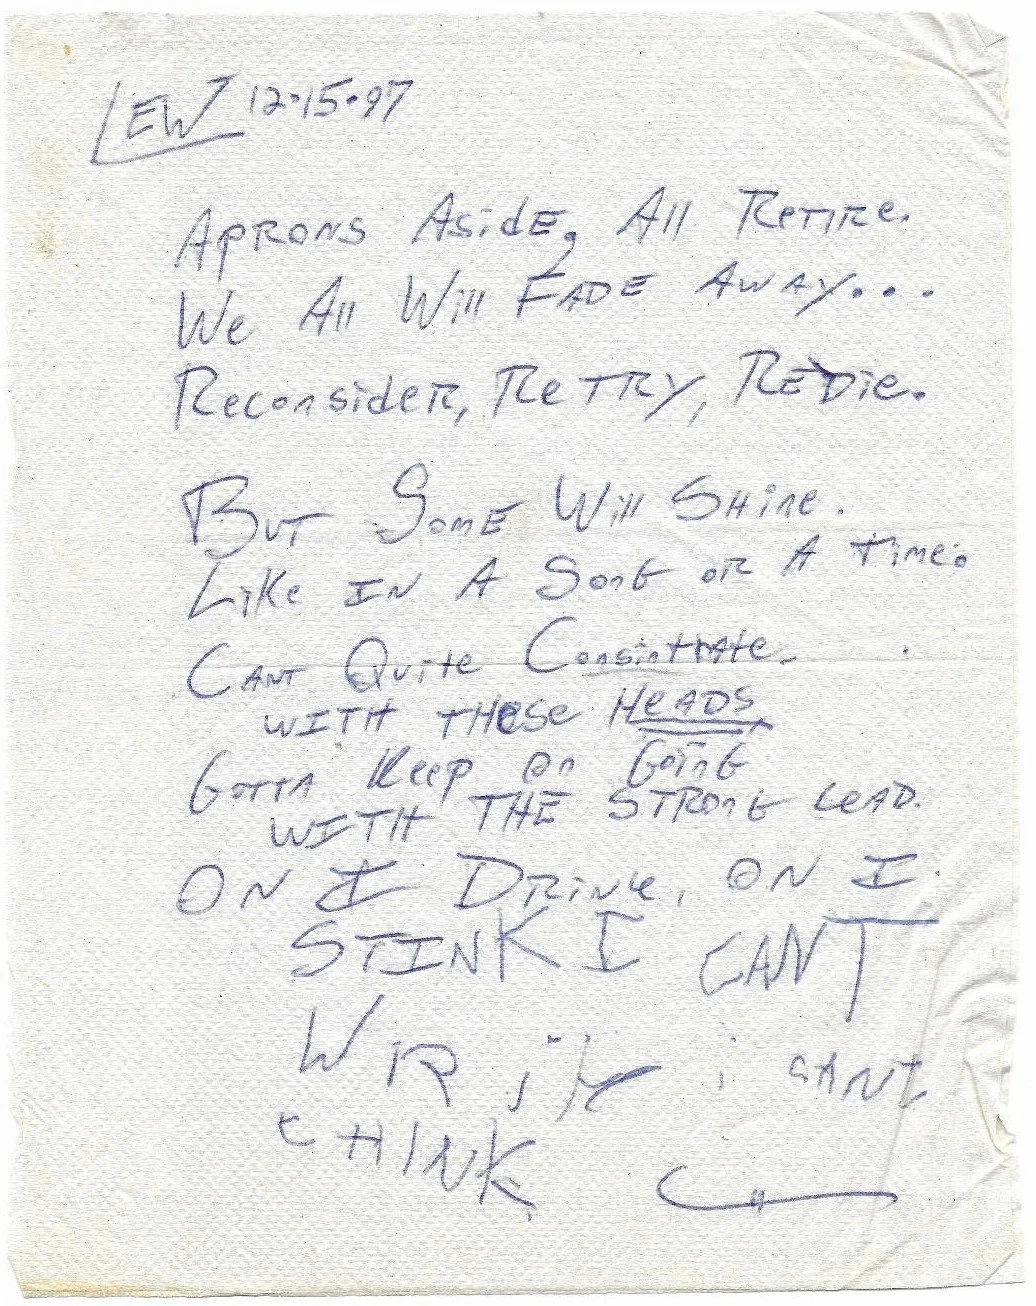 LEW 12•15•97
APRONS ASidE, All RETIRE.
We All Will FADE AWAY...
ReconsidER, ReTRY, REDie.
BUT SomE Will SHine.
LiKe IN A SonG oR A Time.
CANT Quite Consintrate.
WITH THese HeADS
GOTTA Keep On GoinG
WITH THE STRONG LeAD.
ON I DRink, ON I
STINK I CANT
WRite i CANT
tHINK